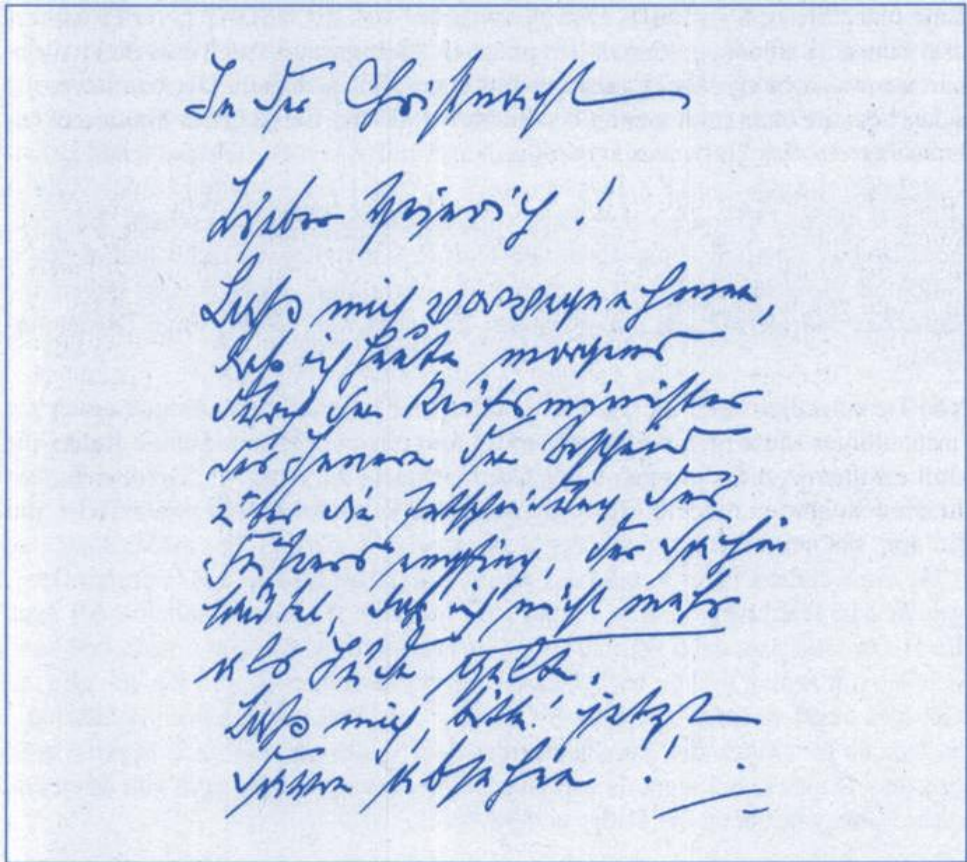 In der Christnacht
Lieber Heinrich!
Laß mich vorwegnehmen,
daß ich heute morgens
durch den Reichsminister
des Inneren den Bescheid
über die Entscheidung des
Führers empfing, der dahin
lautet, daß ich nicht mehr
als Jude gelte.
Laß mich, bitte, jetzt
davon absehen.